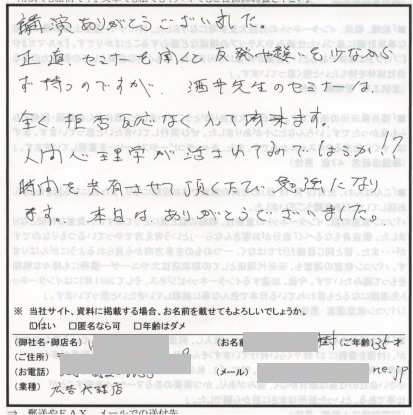 講演ありがとうございました。
正直、セミナーを聞くと反発や疑いを少なから
ず持つのですが、酒井先生のセミナーは、
全く拒否反応なく入って来ます。
人間心理学が活されてるのでしょうか!?
時間を共有させて頂くだけで勉強になり
ます。本日は、ありがとうございました。
※ 当社サイト、資料に掲載する場合、お名前を載せてもよろしいでしょうか。
□はい □匿名なら可 □年齢はダメ
(御社名・御店名) (お名前 (ご年齢)35才
(ご住所)
(お電話) (メール) ne.jp
(業種) 広告代理店
⇒ 郵送やFAX、メールでの送付先